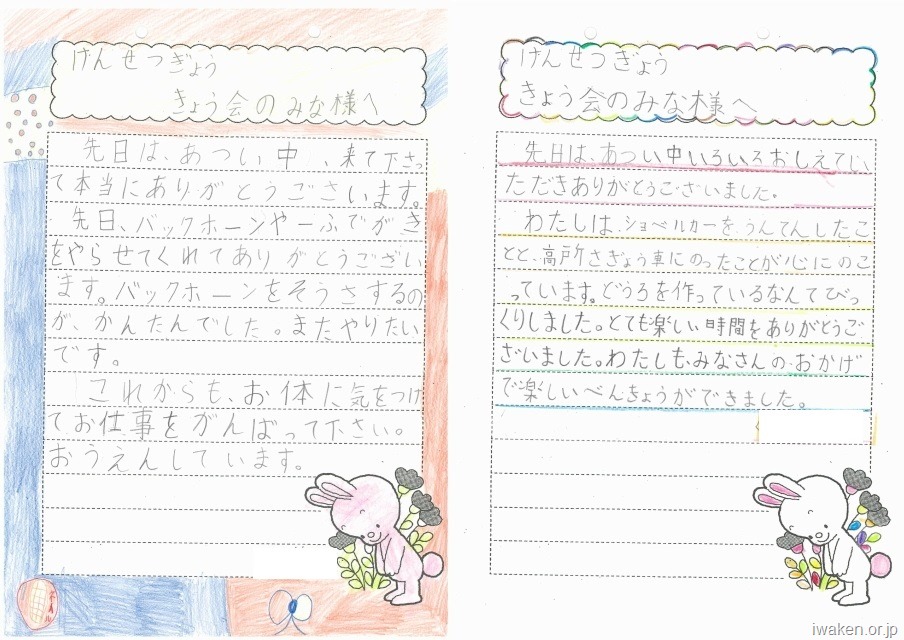 げんせつぎょう
きょう会のみな様へ
先日は、あつい中、来て下さっ
て本当にありがとうございます。
先日、バックホーンやーふでがき
をやらせてくれてありがとうござい
ます。バックホーンをそうさするの
が、かんたんでした。またやりたい
です。
これからも、お体に気をつけ
てお仕事をがんばって下さい。
おうえんしています。
げんせつぎょう
きょう会のみな様へ
先日は、あつい中いろいろおしえてい
ただきありがとうございました。
わたしは、ショベルカーをうんてんしたこ
とと、高所さぎょう車にのったことが心にのこ
っています。どうろを作っているなんてびっ
くりしました。とても楽しい時間をありがとうご
ざいました。わたしも、みなさんのおかげ
で楽しいべんきょうができました。
iwaken.or.jp